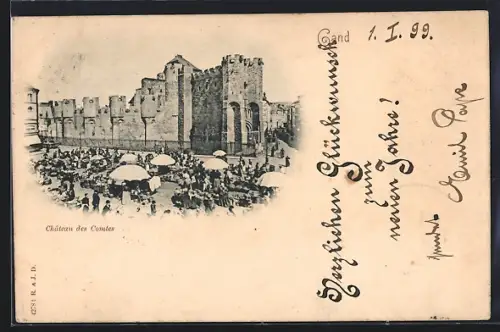 Gand
1. I. 99.
Herzlichen Glückwunsch
zum
neuen Jahre!
Emil
Château des Comtes